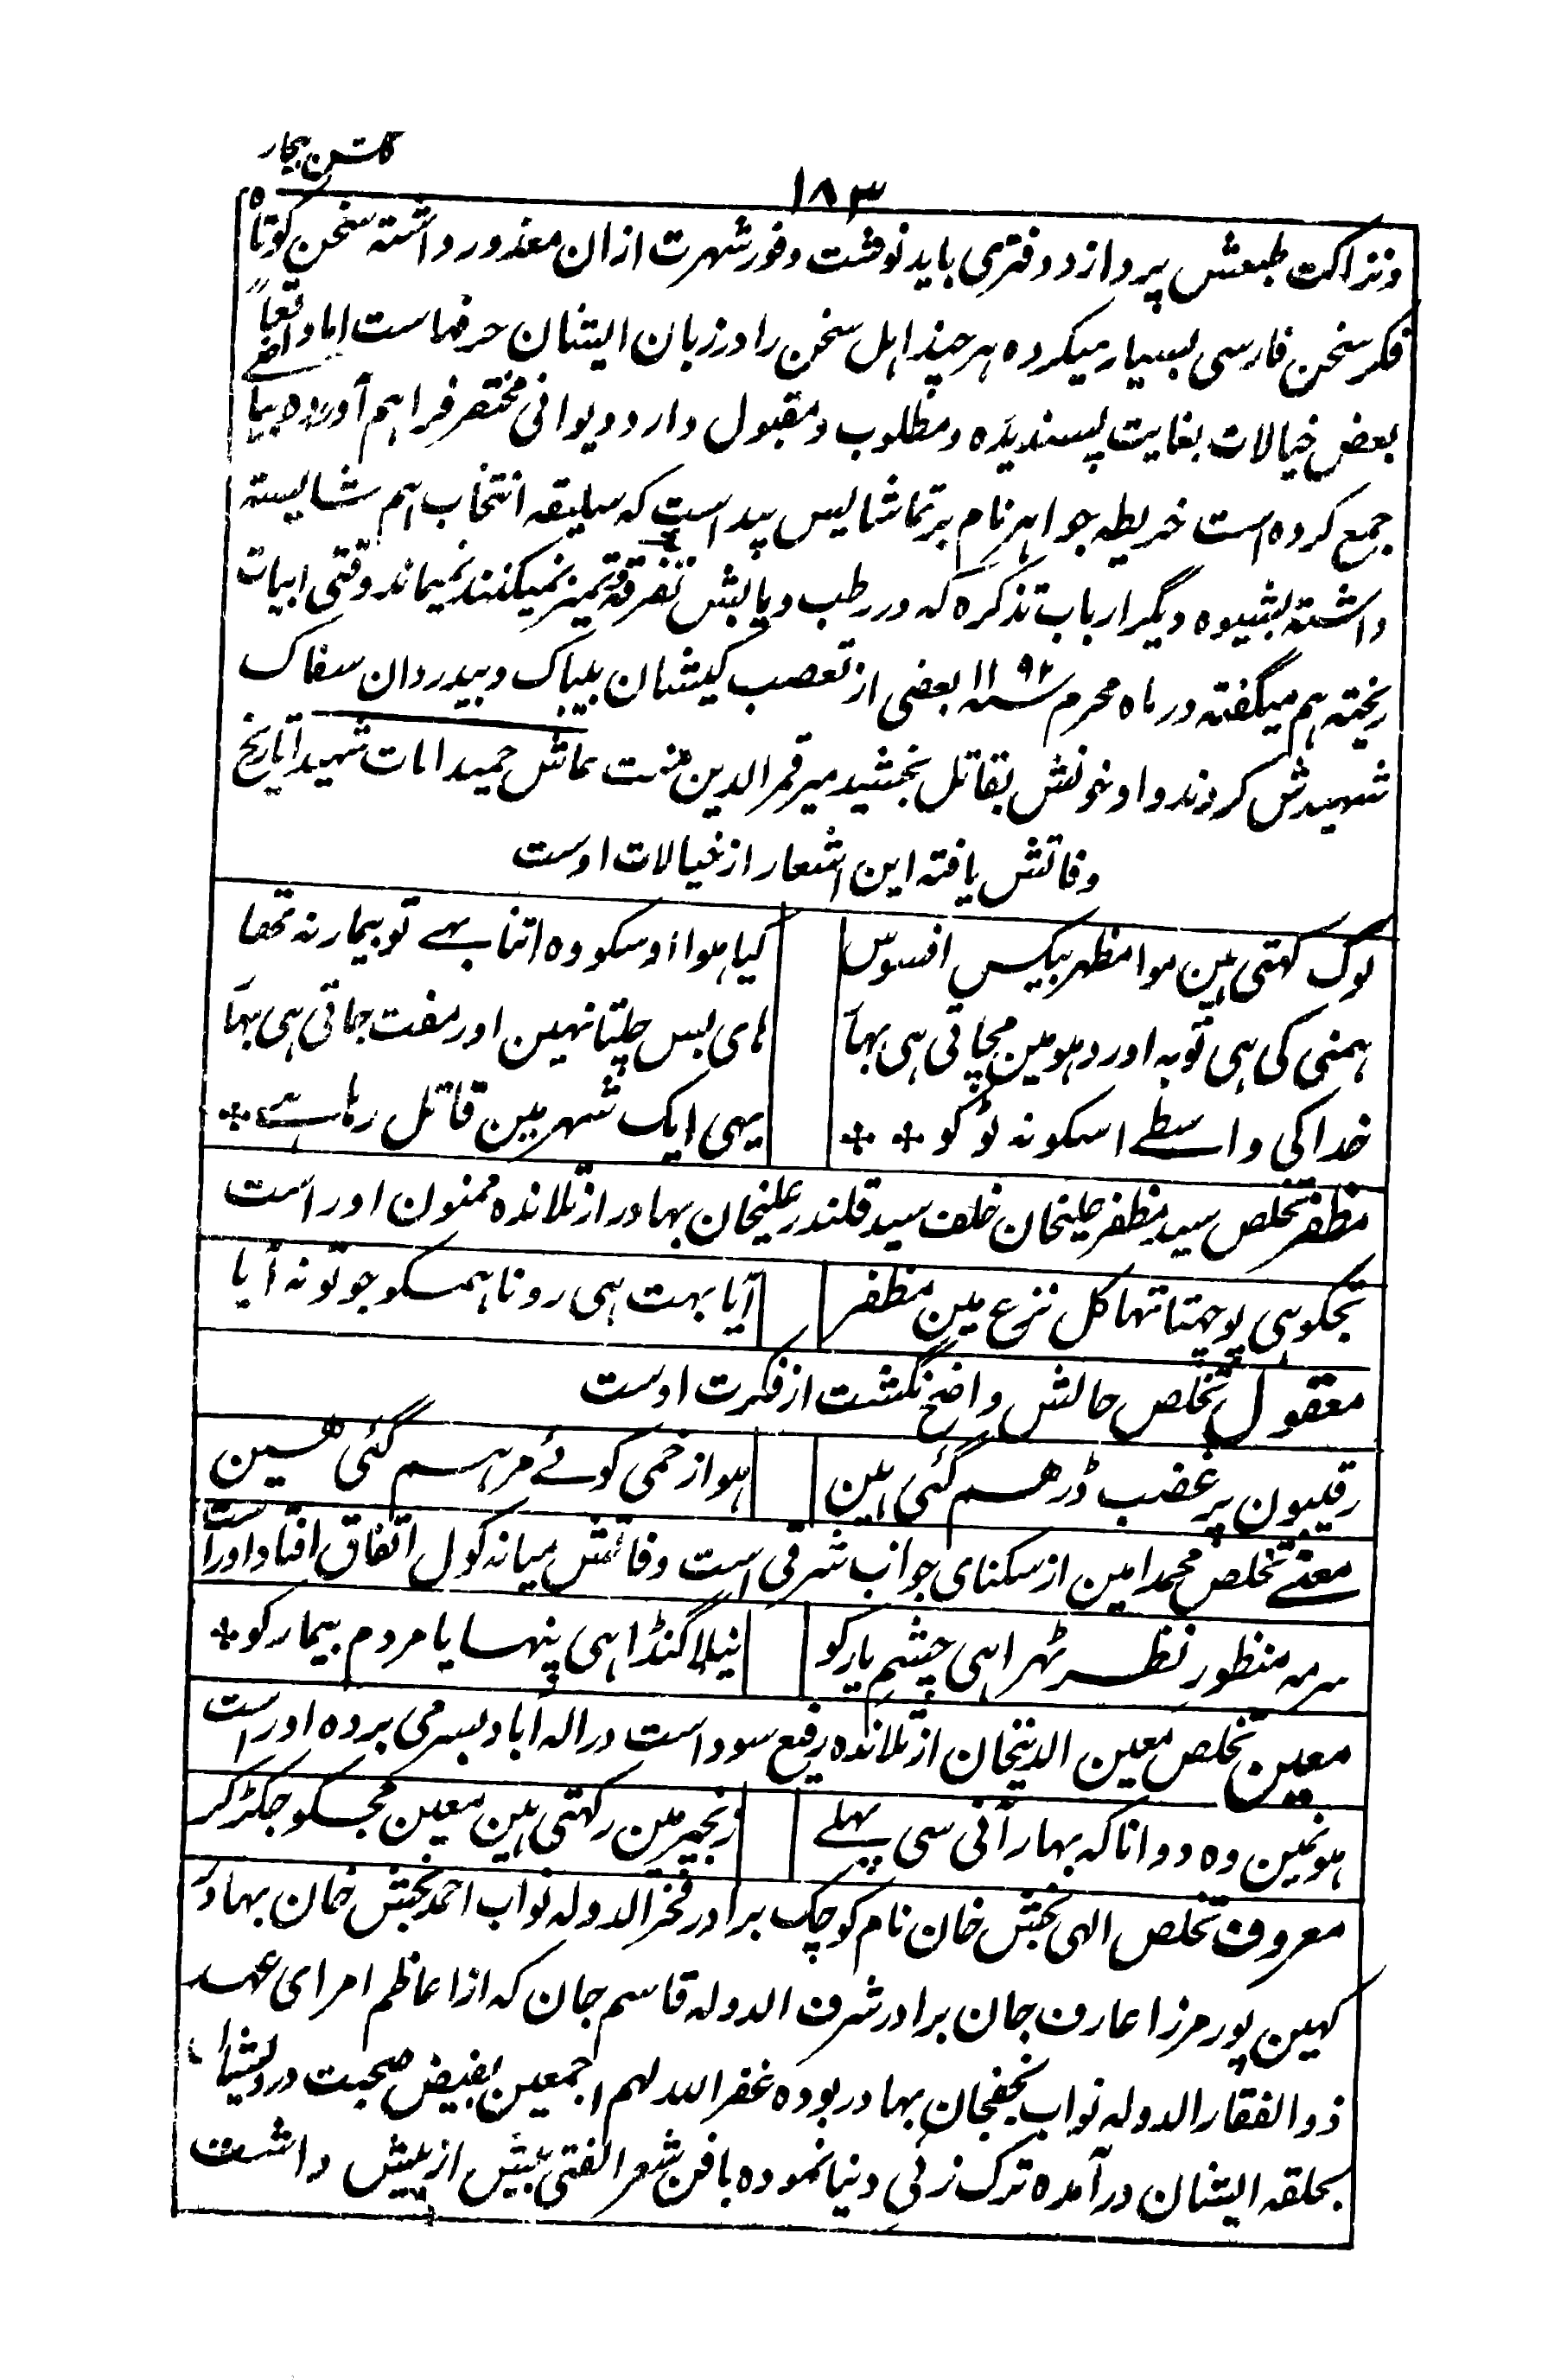 گلشن بیخار
۱۸۳
ونزاکت طبعش پردازد دفتری باید نوشت وفور شهرت ازان معذور داشته سخن کوتاه
فکر سخن فارسی بسیار میکرده هرچند اهل سخن را در زبان ایشان حرفهاست اما واقعاً
بعض خیالات بغایت پسندیده و مطلوب و مقبول دارد دیوانی مختصر فراهم آورده بیاضے
جمع کرده است خریطه جواهر نام بر تماشائیس پیداست که سلیقه انتخاب هم شایسته
داشته بشیوه دیگر ارباب تذکره که در رطب و یابش تفرقه و تمیز نمیکنند نمیماند وقتی ابیات
ریخته هم میگفته در ماه محرم سنه ۱۱۹۴ بعضی از تعصب کیشان بیباک و بیدردان سفاک
شهیدش کردند و او خونش بقاتل بخشید میر قمرالدین منت عاش حمیدا مات شهیدا تاریخ
وفاتش یافته این اشعار از خیالات اوست
لوگ کهتی هین موا مظهر بیکس افسوس کیا هوا اوسکو وه اتنا بهے تو بیمار نه تھا
همنی کی هی توبه اور دهومین مچاتی هی بهار های بس چلتا نهین اور مفت جاتی هی بهار
خدا کی واسطے اسکو نه ٹوکو یهی ایک شهر مین قاتل رها هے
مظفر تخلص سید مظفر علیخان خلف سید قلندر علیخان بهادر از تلامذه ممنون اوراست
تجکو هی پوچهتا تها کل نزع مین مظفر آیا بهت هی رونا همسکو جو تو نه آیا
معقول تخلص حالش واضح نگشت از فکرت اوست
رقیبون پر غضب ڈر هم گئی هین هوا زخمی کوئے مر هم گئی هین
معنے تخلص محمد امین از سکنای جوانب شرقی است وفاتش میانه کول اتفاق افتاد اوراست
سرمه منظور نظر ٹهرا هی چشم یار کو نیلا گنڈا هی پنهایا مردم بیمار کو
معین تخلص معین الدینخان از تلامذه رفیع سوداست در اله آباد بسر می برده اوراست
هونمین وه دوانا که بهار آنی سی پہلے زنجیر مین رکهتی هین معین مجکو جکڑ کر
معروف تخلص الهی بخش خان نام کوچک برادر فخرالدوله نواب احمد بخش خان بهادر
کهین پور مرزا عارف جان برادر شرف الدوله قاسم جان که از اعاظم امرای عهد
ذوالفقار الدوله نواب نجفخان بهادر بوده غفر الله لهم اجمعین بفیض صحبت درویشان
بحلقه ایشان درآمده ترک زئی دنیا نموده با فن شعر الفتی بیش از پیش داشت